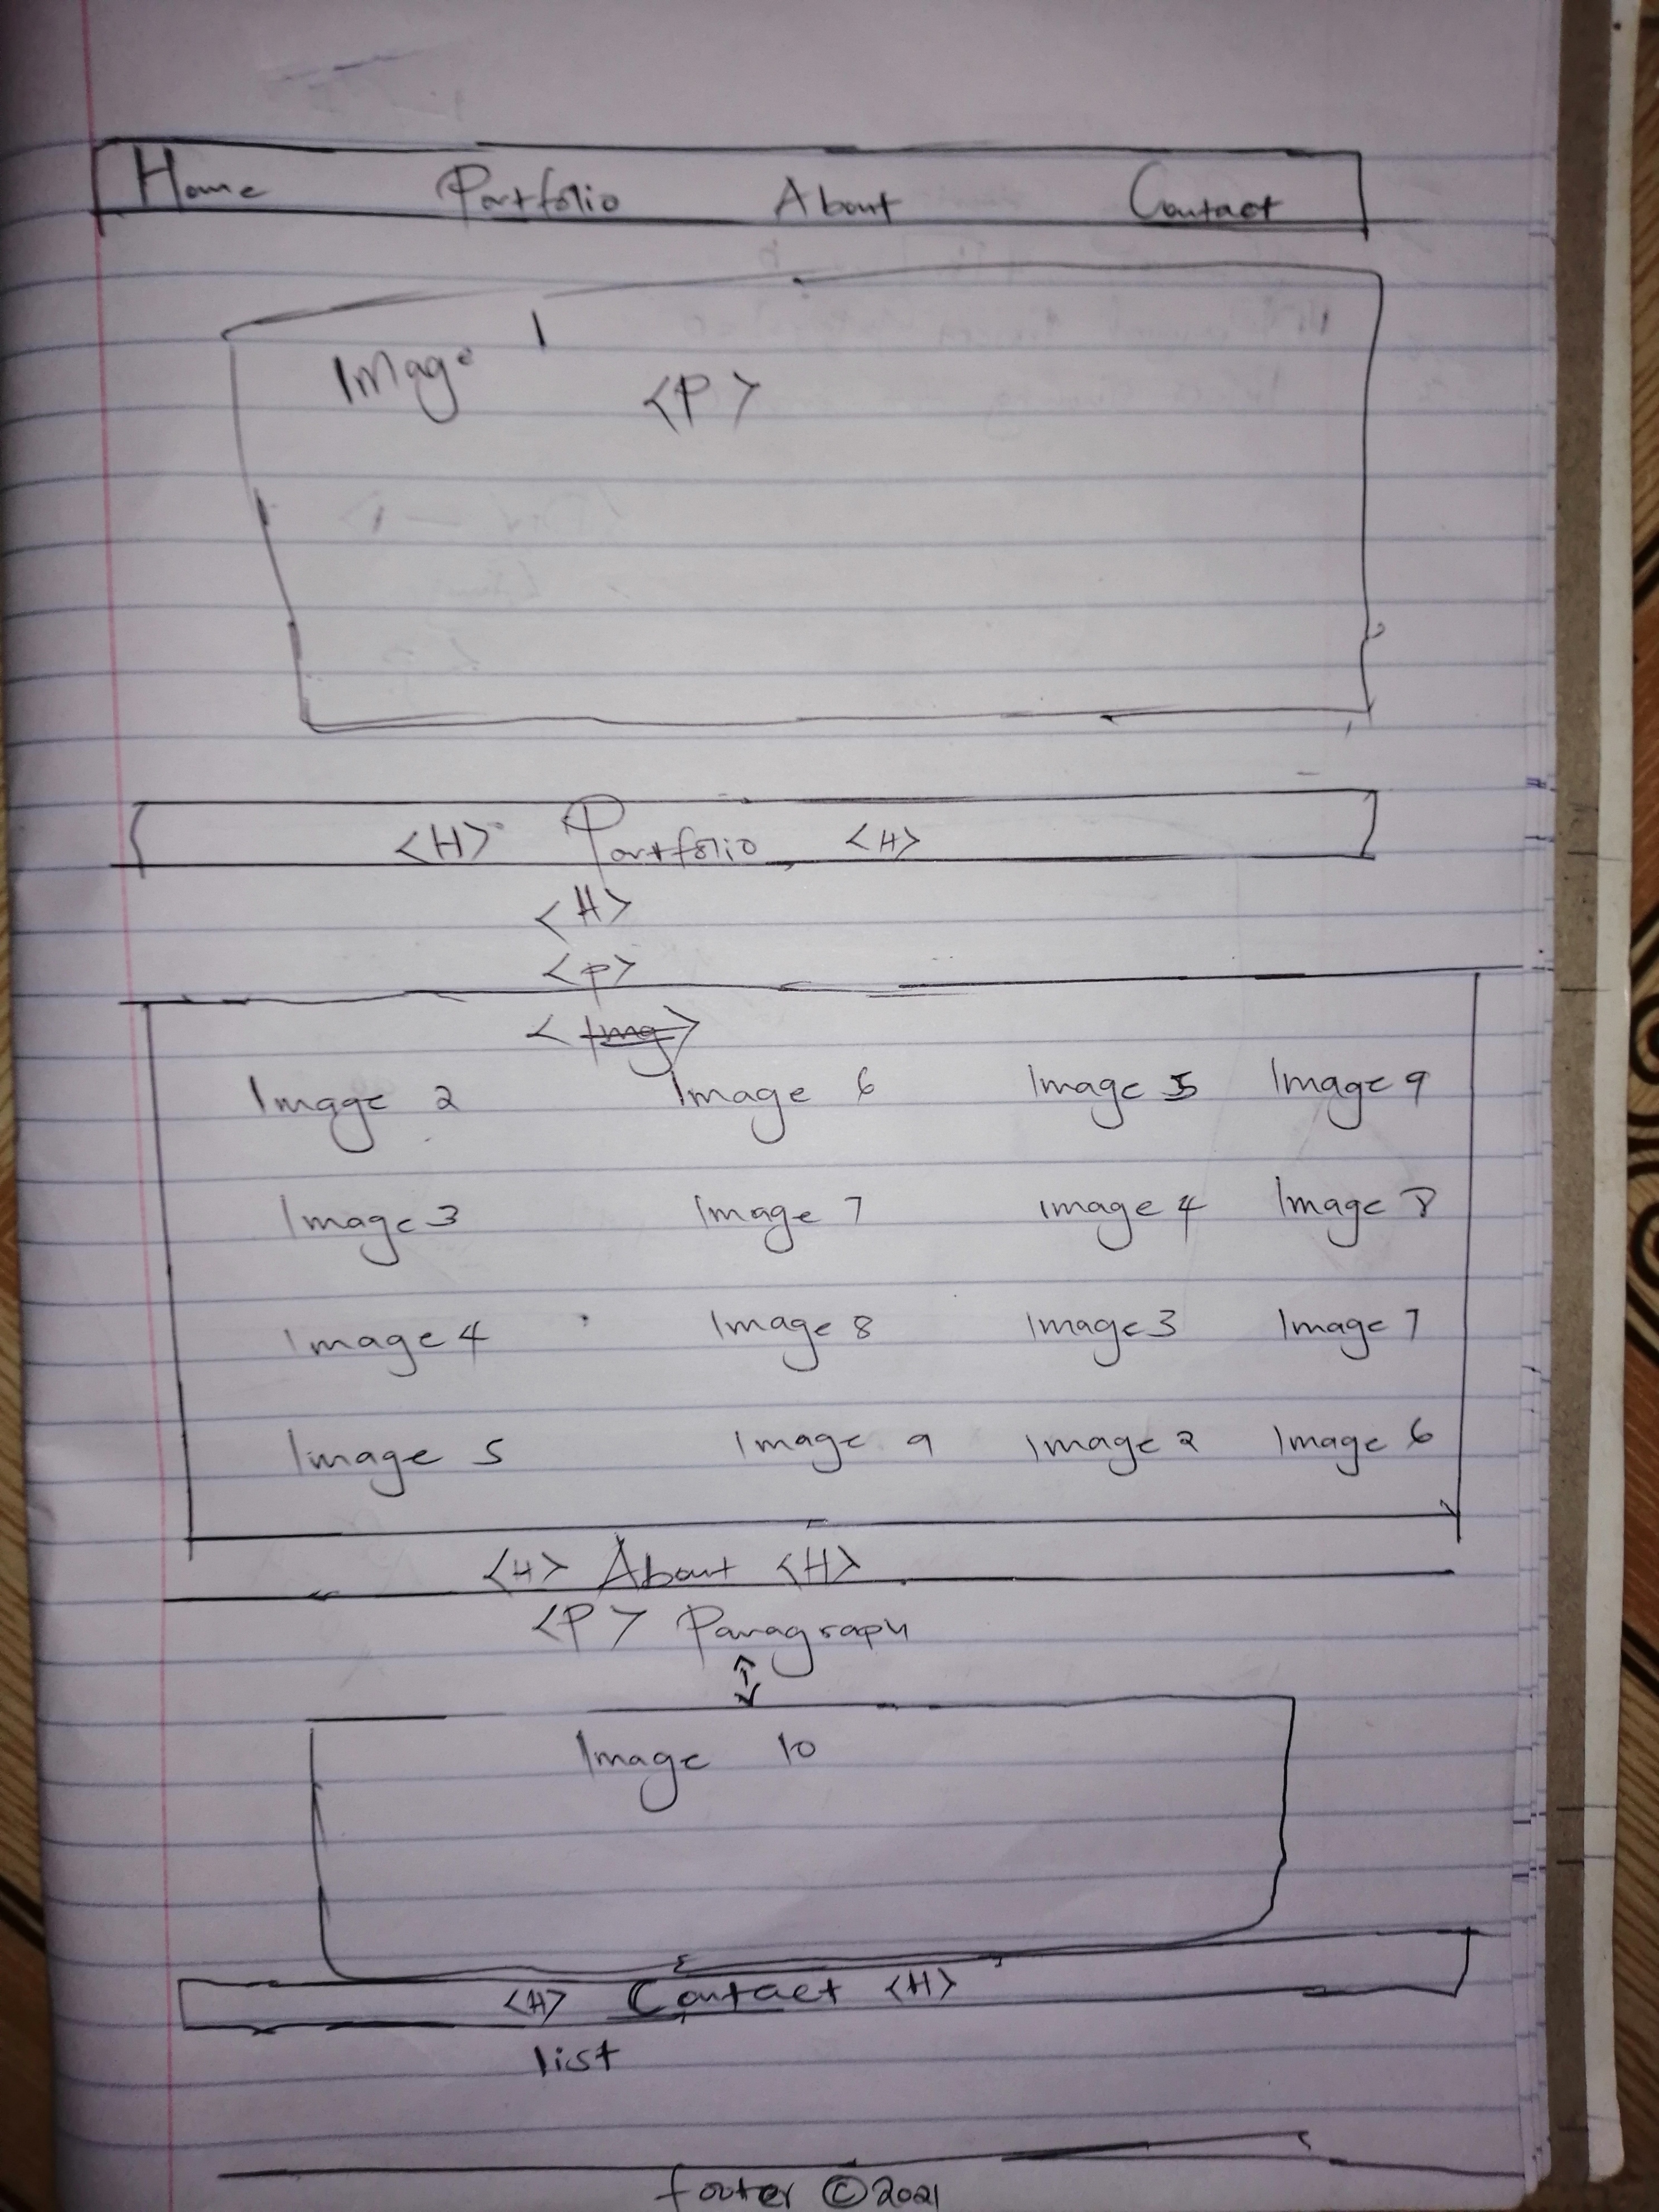 Home Portfolio About Contact
Image 1
<P>
<H> Portfolio <H>
<H>
<P>
<Img>
Image 2 Image 6 Image 5 Image 9
Image 3 Image 7 image 4 Image 8
Image 4 Image 8 Image 3 Image 7
Image 5 Image 9 Image 2 Image 6
<H> About <H>
<P> Paragraph
Image 10
<H> Contact <H>
list
footer © 2021